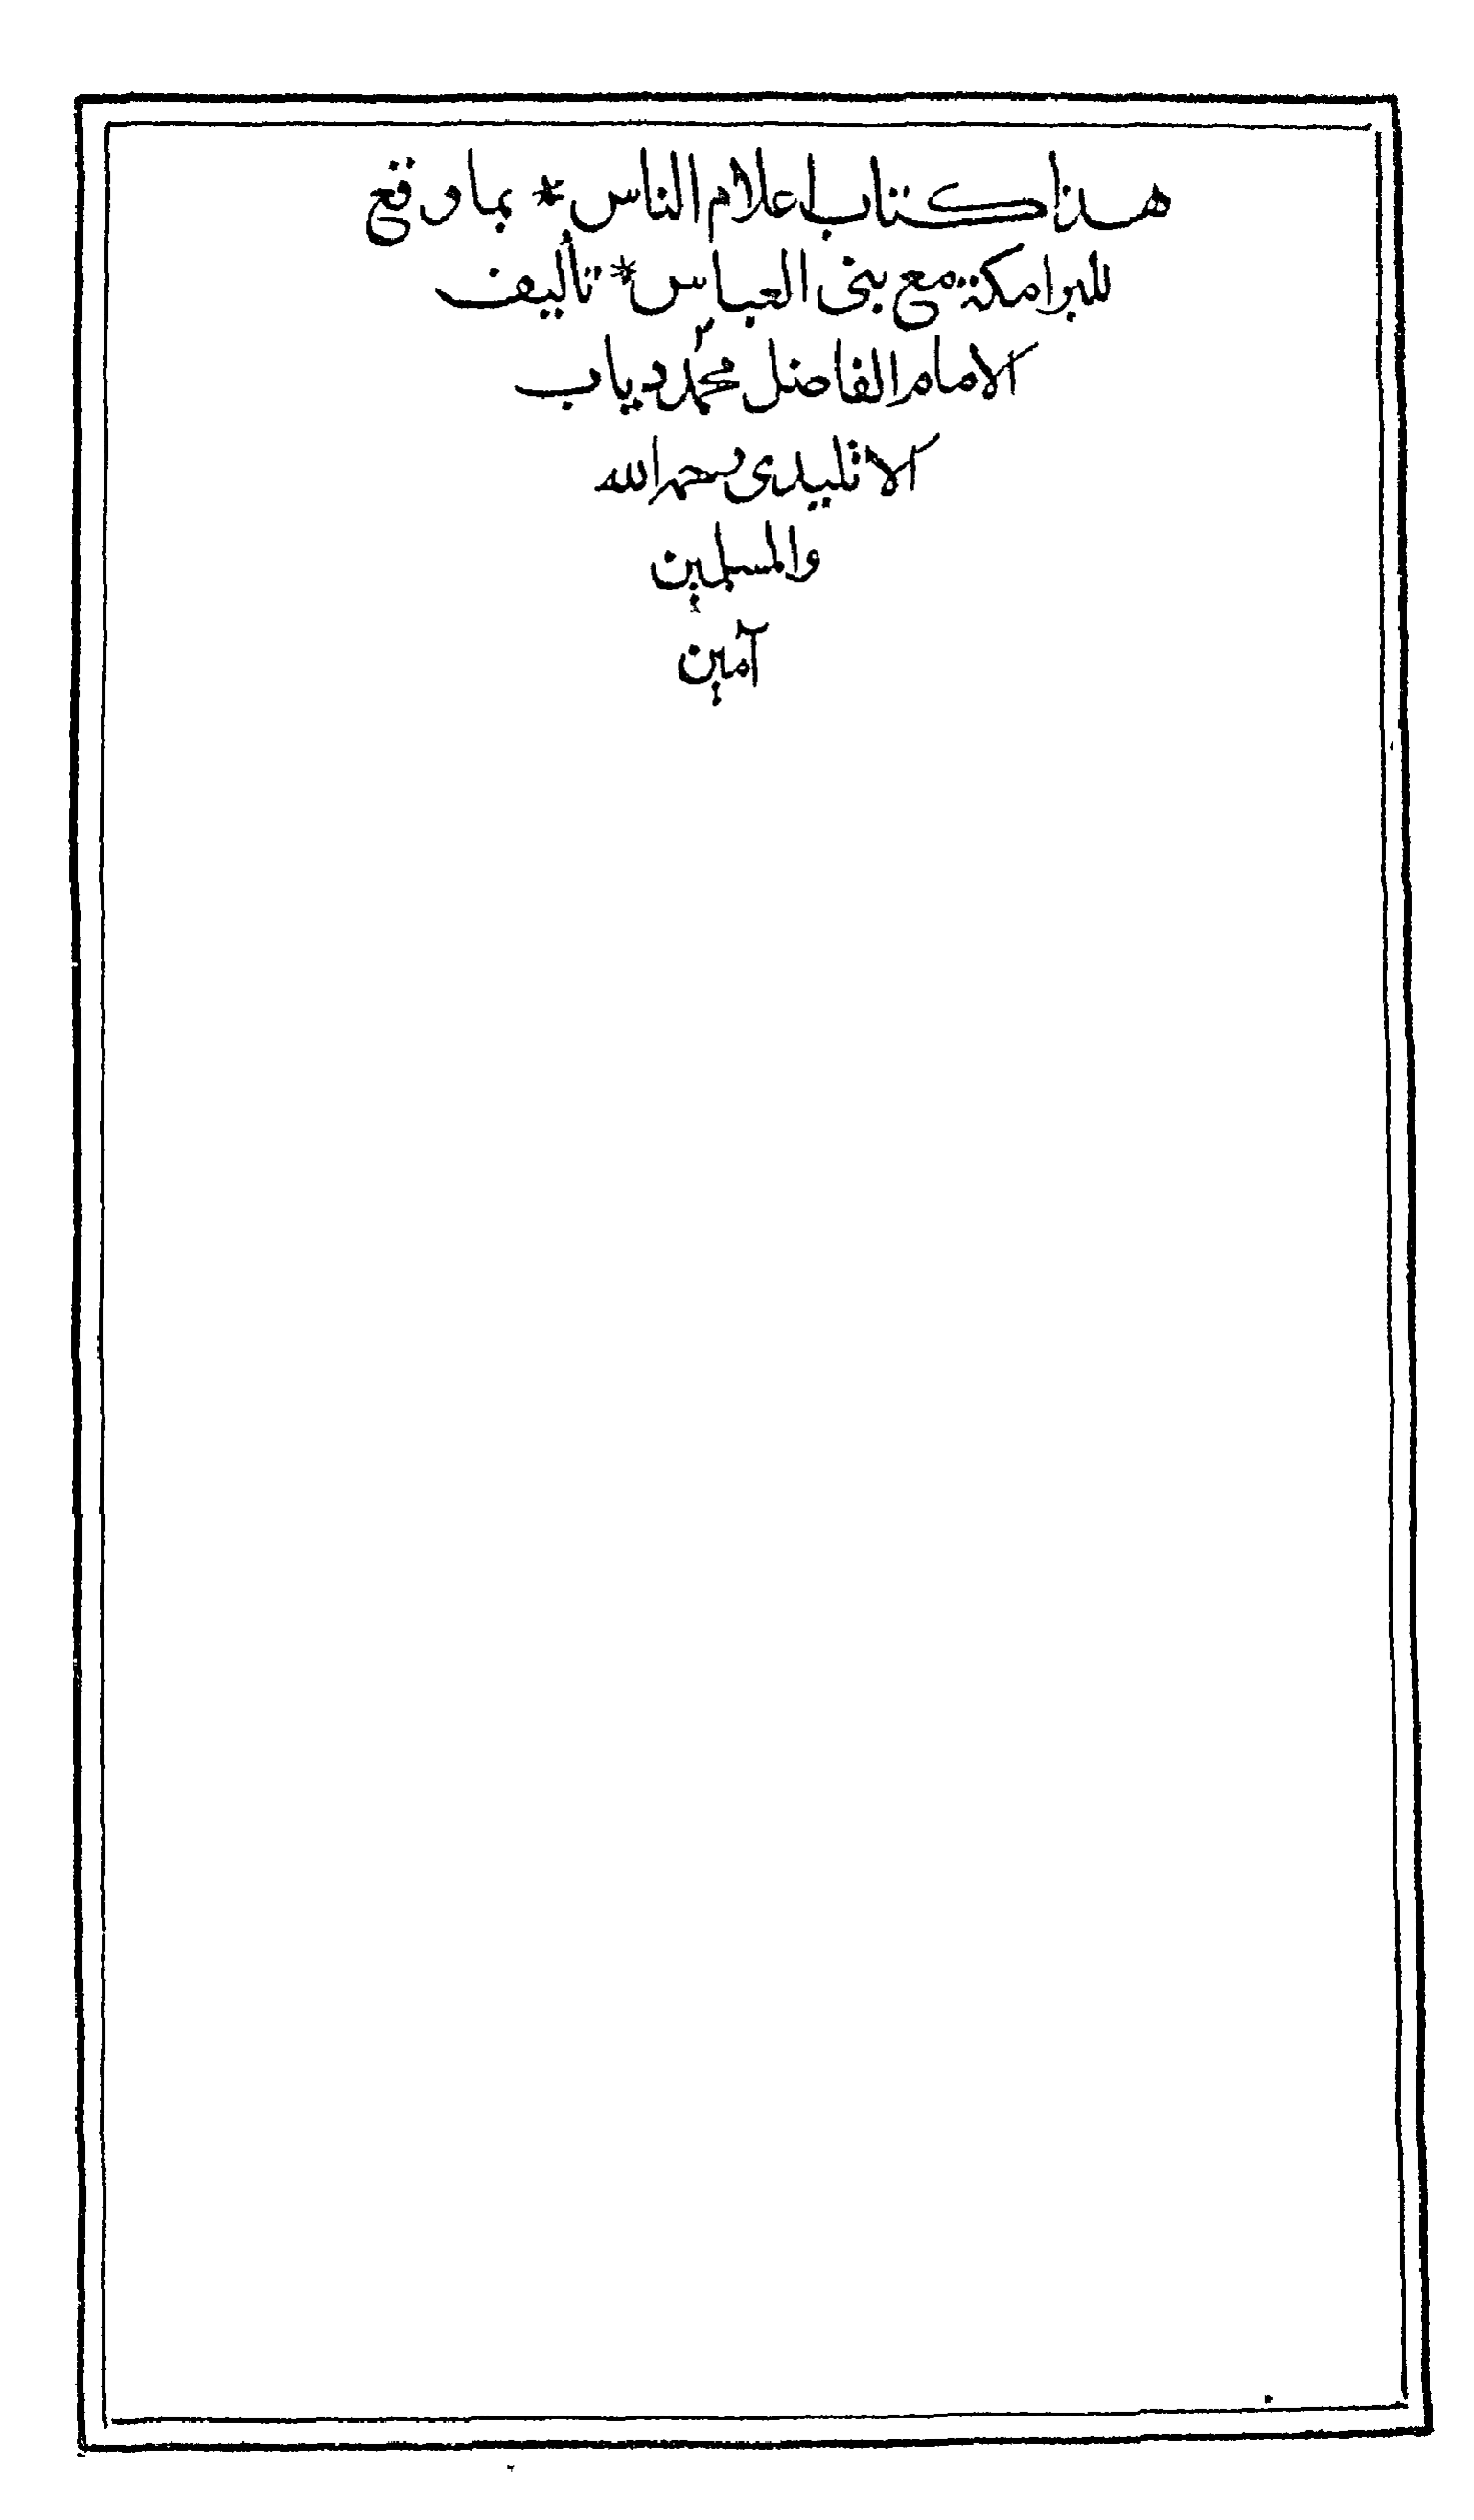 هذا كتاب اعلام الناس * بما وقع
للبرامكة مع بنى العباس * تأليف
الامام الفاضل محمد دياب
الاتليدى رحمه الله
والمسلمين
آمين